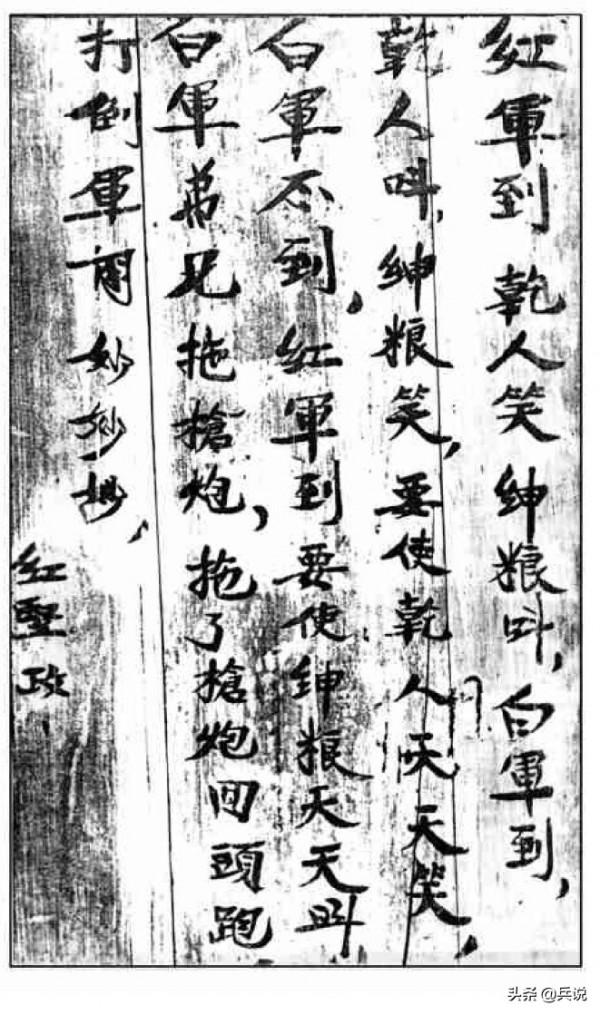 紅軍到 乾人笑 紳粮叫，白軍到，
乾人叫，紳粮笑，要使乾人天天笑，
白軍不到，紅軍到 要使紳粮天天叫
白軍弟兄拖槍炮，拖了槍炮回頭跑
打倒軍閥妙妙妙，
紅堅政、
头条 @兵说